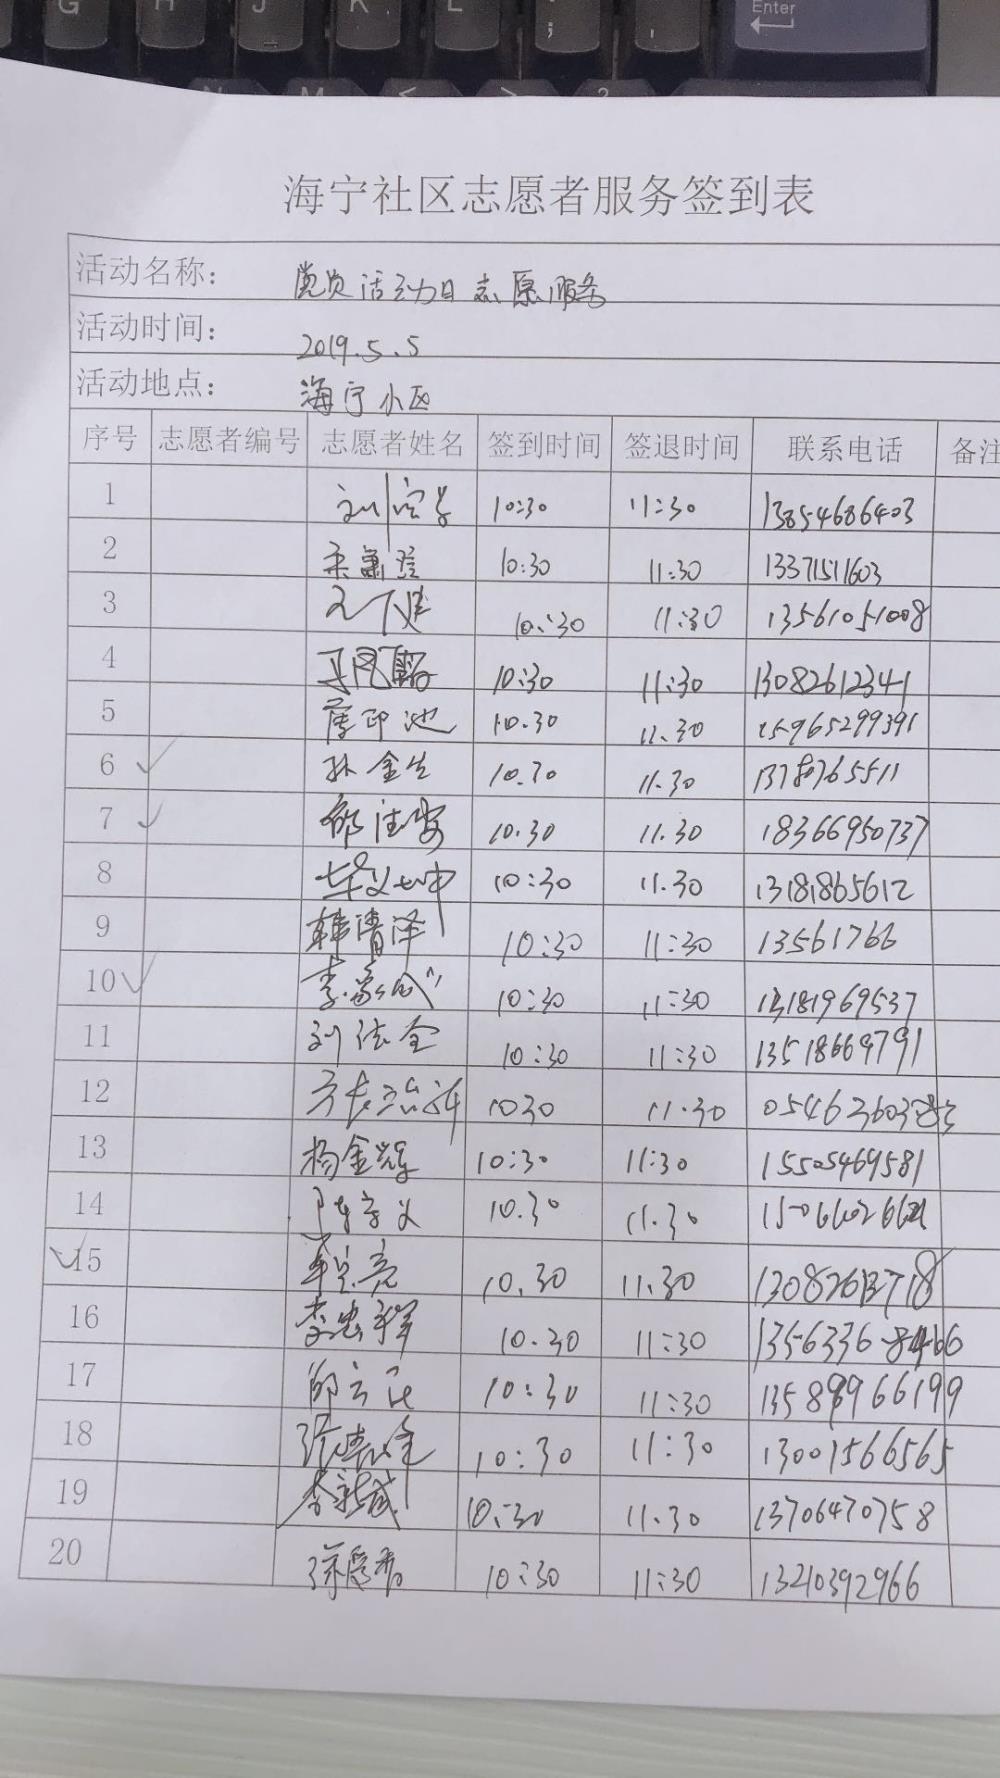 Enter
G H J K L ; '
N M < > ?
海宁社区志愿者服务签到表
活动名称： 党员活动日志愿服务
活动时间： 2019.5.5
活动地点： 海宁小区
序号 志愿者编号 志愿者姓名 签到时间 签退时间 联系电话 备注
1 10:30 11:30 13854686403
2 10:30 11:30 13371511603
3 10:30 11:30 13561051008
4 10:30 11:30 13082612341
5 薛印池 10.30 11.30 15965299391
6 ✓ 孙金生 10.30 11.30
7 ✓ 10.30 11.30 18366950737
8 10:30 11.30 13181865612
9 韩清泽 10:30 11:30 13561766
10 ✓ 10:30 11:30 13181969537
11 刘法全 10:30 11:30 13518669791
12 1030 11.30
13 杨金辉 10:30 11:30 15505469581
14 10.30 11.30
✓ 15 10.30 11.30
16 李忠祥 10.30 11:30
17 10:30 11:30 13589966199
18 10:30 11:30 13001566565
19 李新成 10:30 11.30 13706470758
20 10:30 11:30 13210392966